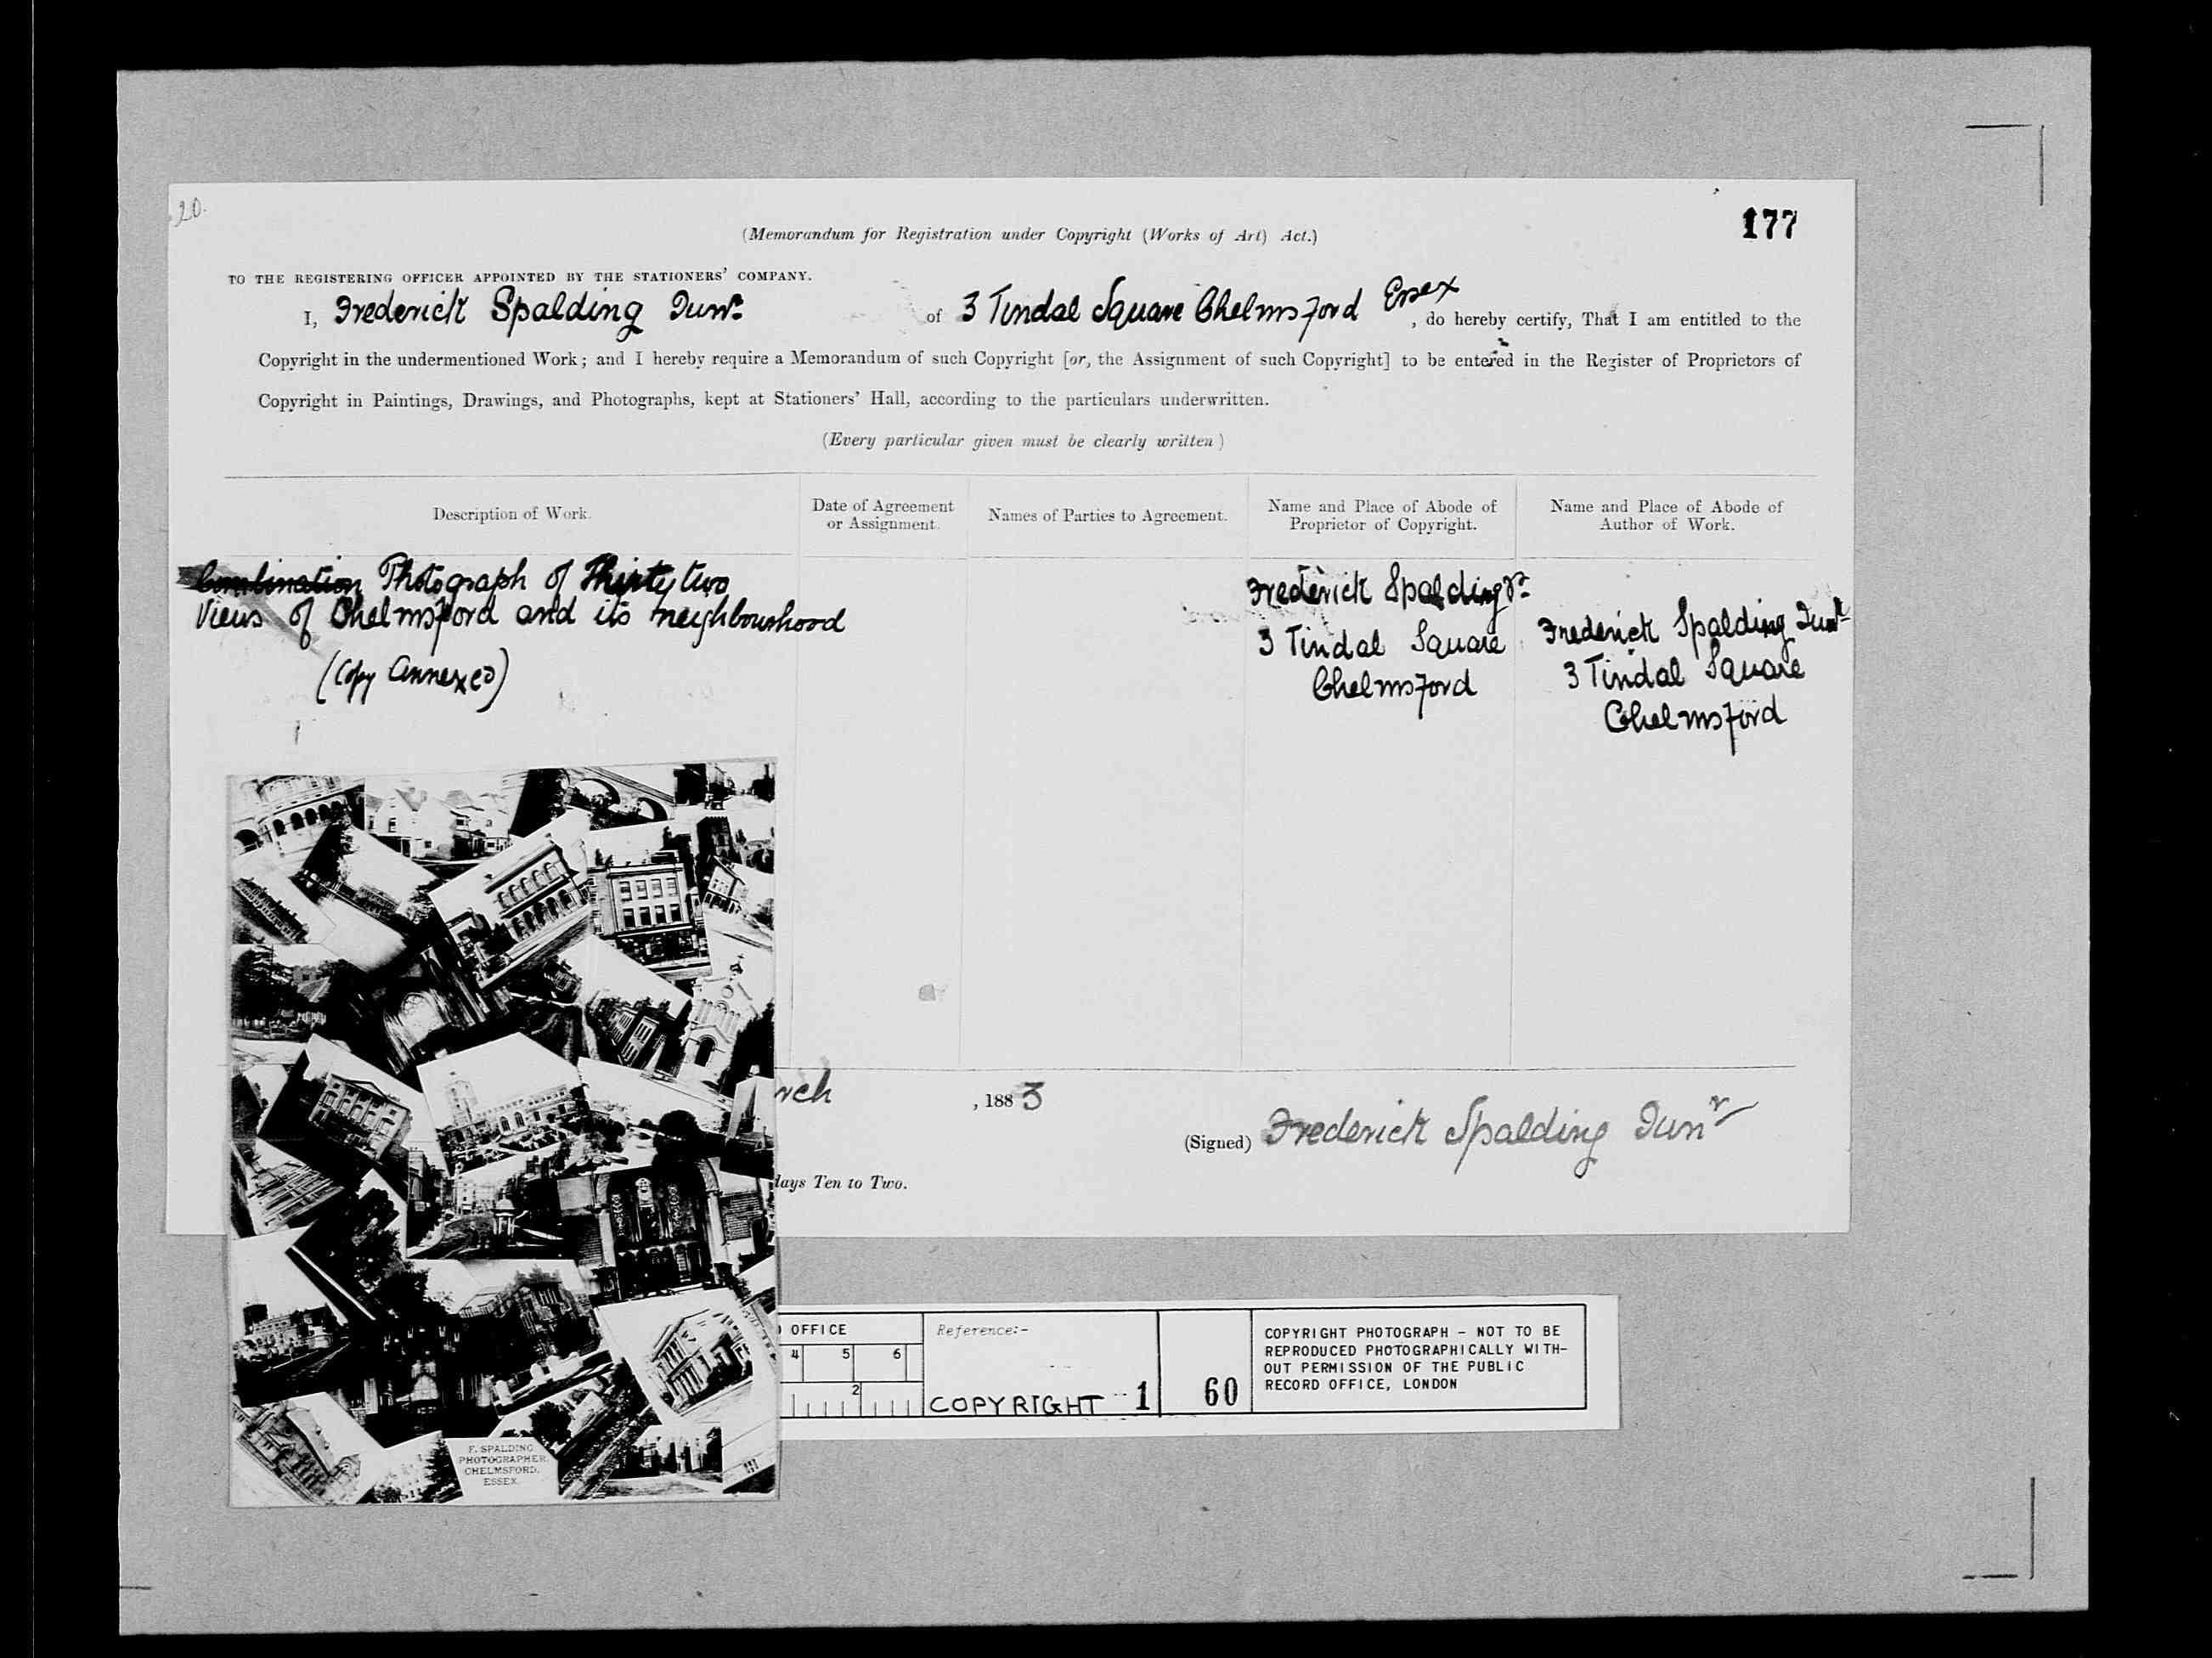 20.
177
(Memorandum for Registration under Copyright (Works of Art) Act.)
TO THE REGISTERING OFFICER APPOINTED BY THE STATIONERS' COMPANY.
I, Frederick Spalding Junr of 3 Tindal Square Chelmsford Essex, do hereby certify, That I am entitled to the
Copyright in the undermentioned Work; and I hereby require a Memorandum of such Copyright [or, the Assignment of such Copyright] to be entered in the Register of Proprietors of
Copyright in Paintings, Drawings, and Photographs, kept at Stationers' Hall, according to the particulars underwritten.
(Every particular given must be clearly written)
Description of Work.
Date of Agreement
or Assignment.
Names of Parties to Agreement.
Name and Place of Abode of
Proprietor of Copyright.
Name and Place of Abode of
Author of Work.
Combination Photograph of Thirty two
Views of Chelmsford and its neighbourhood
(Copy Annexed)
Frederick Spalding Jr
3 Tindal Square
Chelmsford
Frederick Spalding Junr
3 Tindal Square
Chelmsford
rch , 1883
(Signed) Frederick Spalding Junr
days Ten to Two.
F. SPALDING
PHOTOGRAPHER.
CHELMSFORD.
ESSEX.
OFFICE
4 5 6
2
Reference:-
COPYRIGHT 1 60
COPYRIGHT PHOTOGRAPH - NOT TO BE
REPRODUCED PHOTOGRAPHICALLY WITH-
OUT PERMISSION OF THE PUBLIC
RECORD OFFICE, LONDON